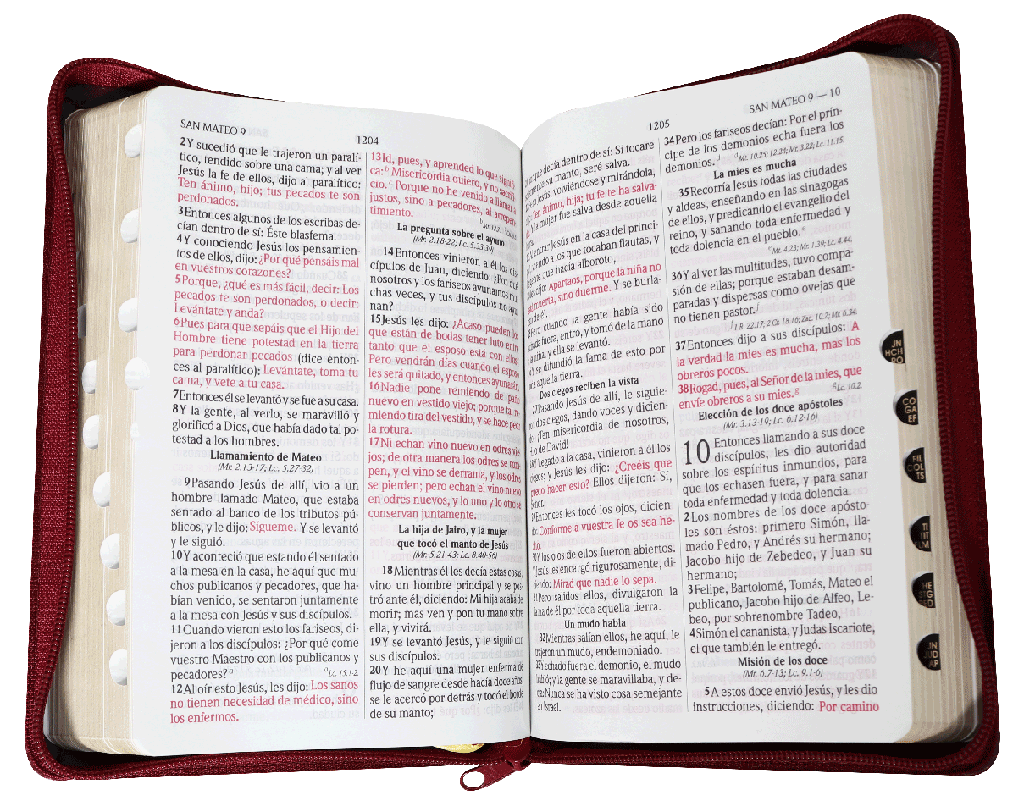 SAN MATEO 9
1204
2Y sucedió que le trajeron un paralí-
tico, tendido sobre una cama; y al ver
Jesús la fe de ellos, dijo al paralítico:
Ten ánimo, hijo; tus pecados te son
perdonados.
3Entonces algunos de los escribas de-
cían dentro de sí: Éste blasfema.
4Y conociendo Jesús los pensamien-
tos de ellos, dijo: ¿Por qué pensáis mal
en vuestros corazones?
5Porque, ¿qué es más fácil, decir: Los
pecados te son perdonados, o decir:
Levántate y anda?
6Pues para que sepáis que el Hijo del
Hombre tiene potestad en la tierra
para perdonar pecados (dice enton-
ces al paralítico): Levántate, toma tu
cama, y vete a tu casa.
7Entonces él se levantó y se fue a su casa.
8Y la gente, al verlo, se maravilló y
glorificó a Dios, que había dado tal po-
testad a los hombres.
Llamamiento de Mateo
(Mr. 2.13-17; Lc. 5.27-32)
9Pasando Jesús de allí, vio a un
hombre llamado Mateo, que estaba
sentado al banco de los tributos pú-
blicos, y le dijo: Sígueme. Y se levantó
y le siguió.
10Y aconteció que estando él sentado
a la mesa en la casa, he aquí que mu-
chos publicanos y pecadores, que ha-
bían venido, se sentaron juntamente
a la mesa con Jesús y sus discípulos.
11Cuando vieron esto los fariseos, di-
jeron a los discípulos: ¿Por qué come
vuestro Maestro con los publicanos y
pecadores?
Lc. 15.1-2
12Al oír esto Jesús, les dijo: Los sanos
no tienen necesidad de médico, sino
los enfermos.
13Id, pues, y aprended lo que signifi-
ca: Misericordia quiero, y no sacrifi-
cio. Porque no he venido a llamar a
justos, sino a pecadores, al arrepen-
timiento.
La pregunta sobre el ayuno
(Mr. 2.18-22; Lc. 5.33-39)
14Entonces vinieron a él los dis-
cípulos de Juan, diciendo: ¿Por qué
nosotros y los fariseos ayunamos mu-
chas veces, y tus discípulos no ayu-
nan?
15Jesús les dijo: ¿Acaso pueden los
que están de bodas tener luto entre
tanto que el esposo está con ellos?
Pero vendrán días cuando el esposo
les será quitado, y entonces ayunarán.
16Nadie pone remiendo de paño
nuevo en vestido viejo; porque tal re-
miendo tira del vestido, y se hace peor
la rotura.
17Ni echan vino nuevo en odres vie-
jos; de otra manera los odres se rom-
pen, y el vino se derrama, y los odres
se pierden; pero echan el vino nuevo
en odres nuevos, y lo uno y lo otro se
conservan juntamente.
La hija de Jairo, y la mujer
que tocó el manto de Jesús
(Mr. 5.21-43; Lc. 8.40-56)
18Mientras él les decía estas cosas,
vino un hombre principal y se pos-
tró ante él, diciendo: Mi hija acaba de
morir; mas ven y pon tu mano sobre
ella, y vivirá.
19Y se levantó Jesús, y le siguió con
sus discípulos.
20Y he aquí una mujer enferma de
flujo de sangre desde hacía doce años
se le acercó por detrás y tocó el borde
de su manto;
1205
SAN MATEO 9 — 10
decía dentro de sí: Si tocare
su manto, seré salva.
Jesús, volviéndose y mirándola,
Ten ánimo, hija; tu fe te ha salva-
la mujer fue salva desde aquella
Jesús en la casa del princi-
a los que tocaban flautas, y
que hacía alboroto,
dijo: Apartaos, porque la niña no
muerta, sino duerme. Y se burla-
de él.
Pero cuando la gente había sido
fuera, entró, y tomó de la mano
niña, y ella se levantó.
se difundió la fama de esto por
aquella tierra.
Dos ciegos reciben la vista
Pasando Jesús de allí, le siguie-
dos ciegos, dando voces y dicien-
¡Ten misericordia de nosotros,
de David!
llegado a la casa, vinieron a él los
ciegos; y Jesús les dijo: ¿Creéis que
puedo hacer esto? Ellos dijeron: Sí,
Señor.
Entonces les tocó los ojos, dicien-
do: Conforme a vuestra fe os sea he-
los ojos de ellos fueron abiertos.
Jesús les encargó rigurosamente, di-
ciendo: Mirad que nadie lo sepa.
Pero salidos ellos, divulgaron la
fama de él por toda aquella tierra.
Un mudo habla
32Mientras salían ellos, he aquí, le
trajeron un mudo, endemoniado.
echado fuera el demonio, el mudo
habló; y la gente se maravillaba, y de-
Nunca se ha visto cosa semejante
en Israel.
34Pero los fariseos decían: Por el prín-
cipe de los demonios echa fuera los
demonios.
La mies es mucha
35Recorría Jesús todas las ciudades
y aldeas, enseñando en las sinagogas
de ellos, y predicando el evangelio del
reino, y sanando toda enfermedad y
toda dolencia en el pueblo.
Mt. 4.23; Mr. 1.39; Lc. 4.44
36Y al ver las multitudes, tuvo compa-
sión de ellas; porque estaban desam-
paradas y dispersas como ovejas que
no tienen pastor.
1 R. 22.17; 2 Cr. 18.16; Zac. 10.2; Mr. 6.34
37Entonces dijo a sus discípulos: A
la verdad la mies es mucha, mas los
obreros pocos.
38Rogad, pues, al Señor de la mies, que
envíe obreros a su mies.
Lc. 10.2
Elección de los doce apóstoles
(Mr. 3.13-19; Lc. 6.12-16)
10 Entonces llamando a sus doce
discípulos, les dio autoridad
sobre los espíritus inmundos, para
que los echasen fuera, y para sanar
toda enfermedad y toda dolencia.
2 Los nombres de los doce apósto-
les son éstos: primero Simón, lla-
mado Pedro, y Andrés su hermano;
Jacobo hijo de Zebedeo, y Juan su
hermano;
3Felipe, Bartolomé, Tomás, Mateo el
publicano, Jacobo hijo de Alfeo, Le-
beo, por sobrenombre Tadeo,
4Simón el cananista, y Judas Iscariote,
el que también le entregó.
Misión de los doce
(Mr. 6.7-13; Lc. 9.1-6)
5A estos doce envió Jesús, y les dio
instrucciones, diciendo: Por camino
JN
HCH
RO
CO
GA
EF